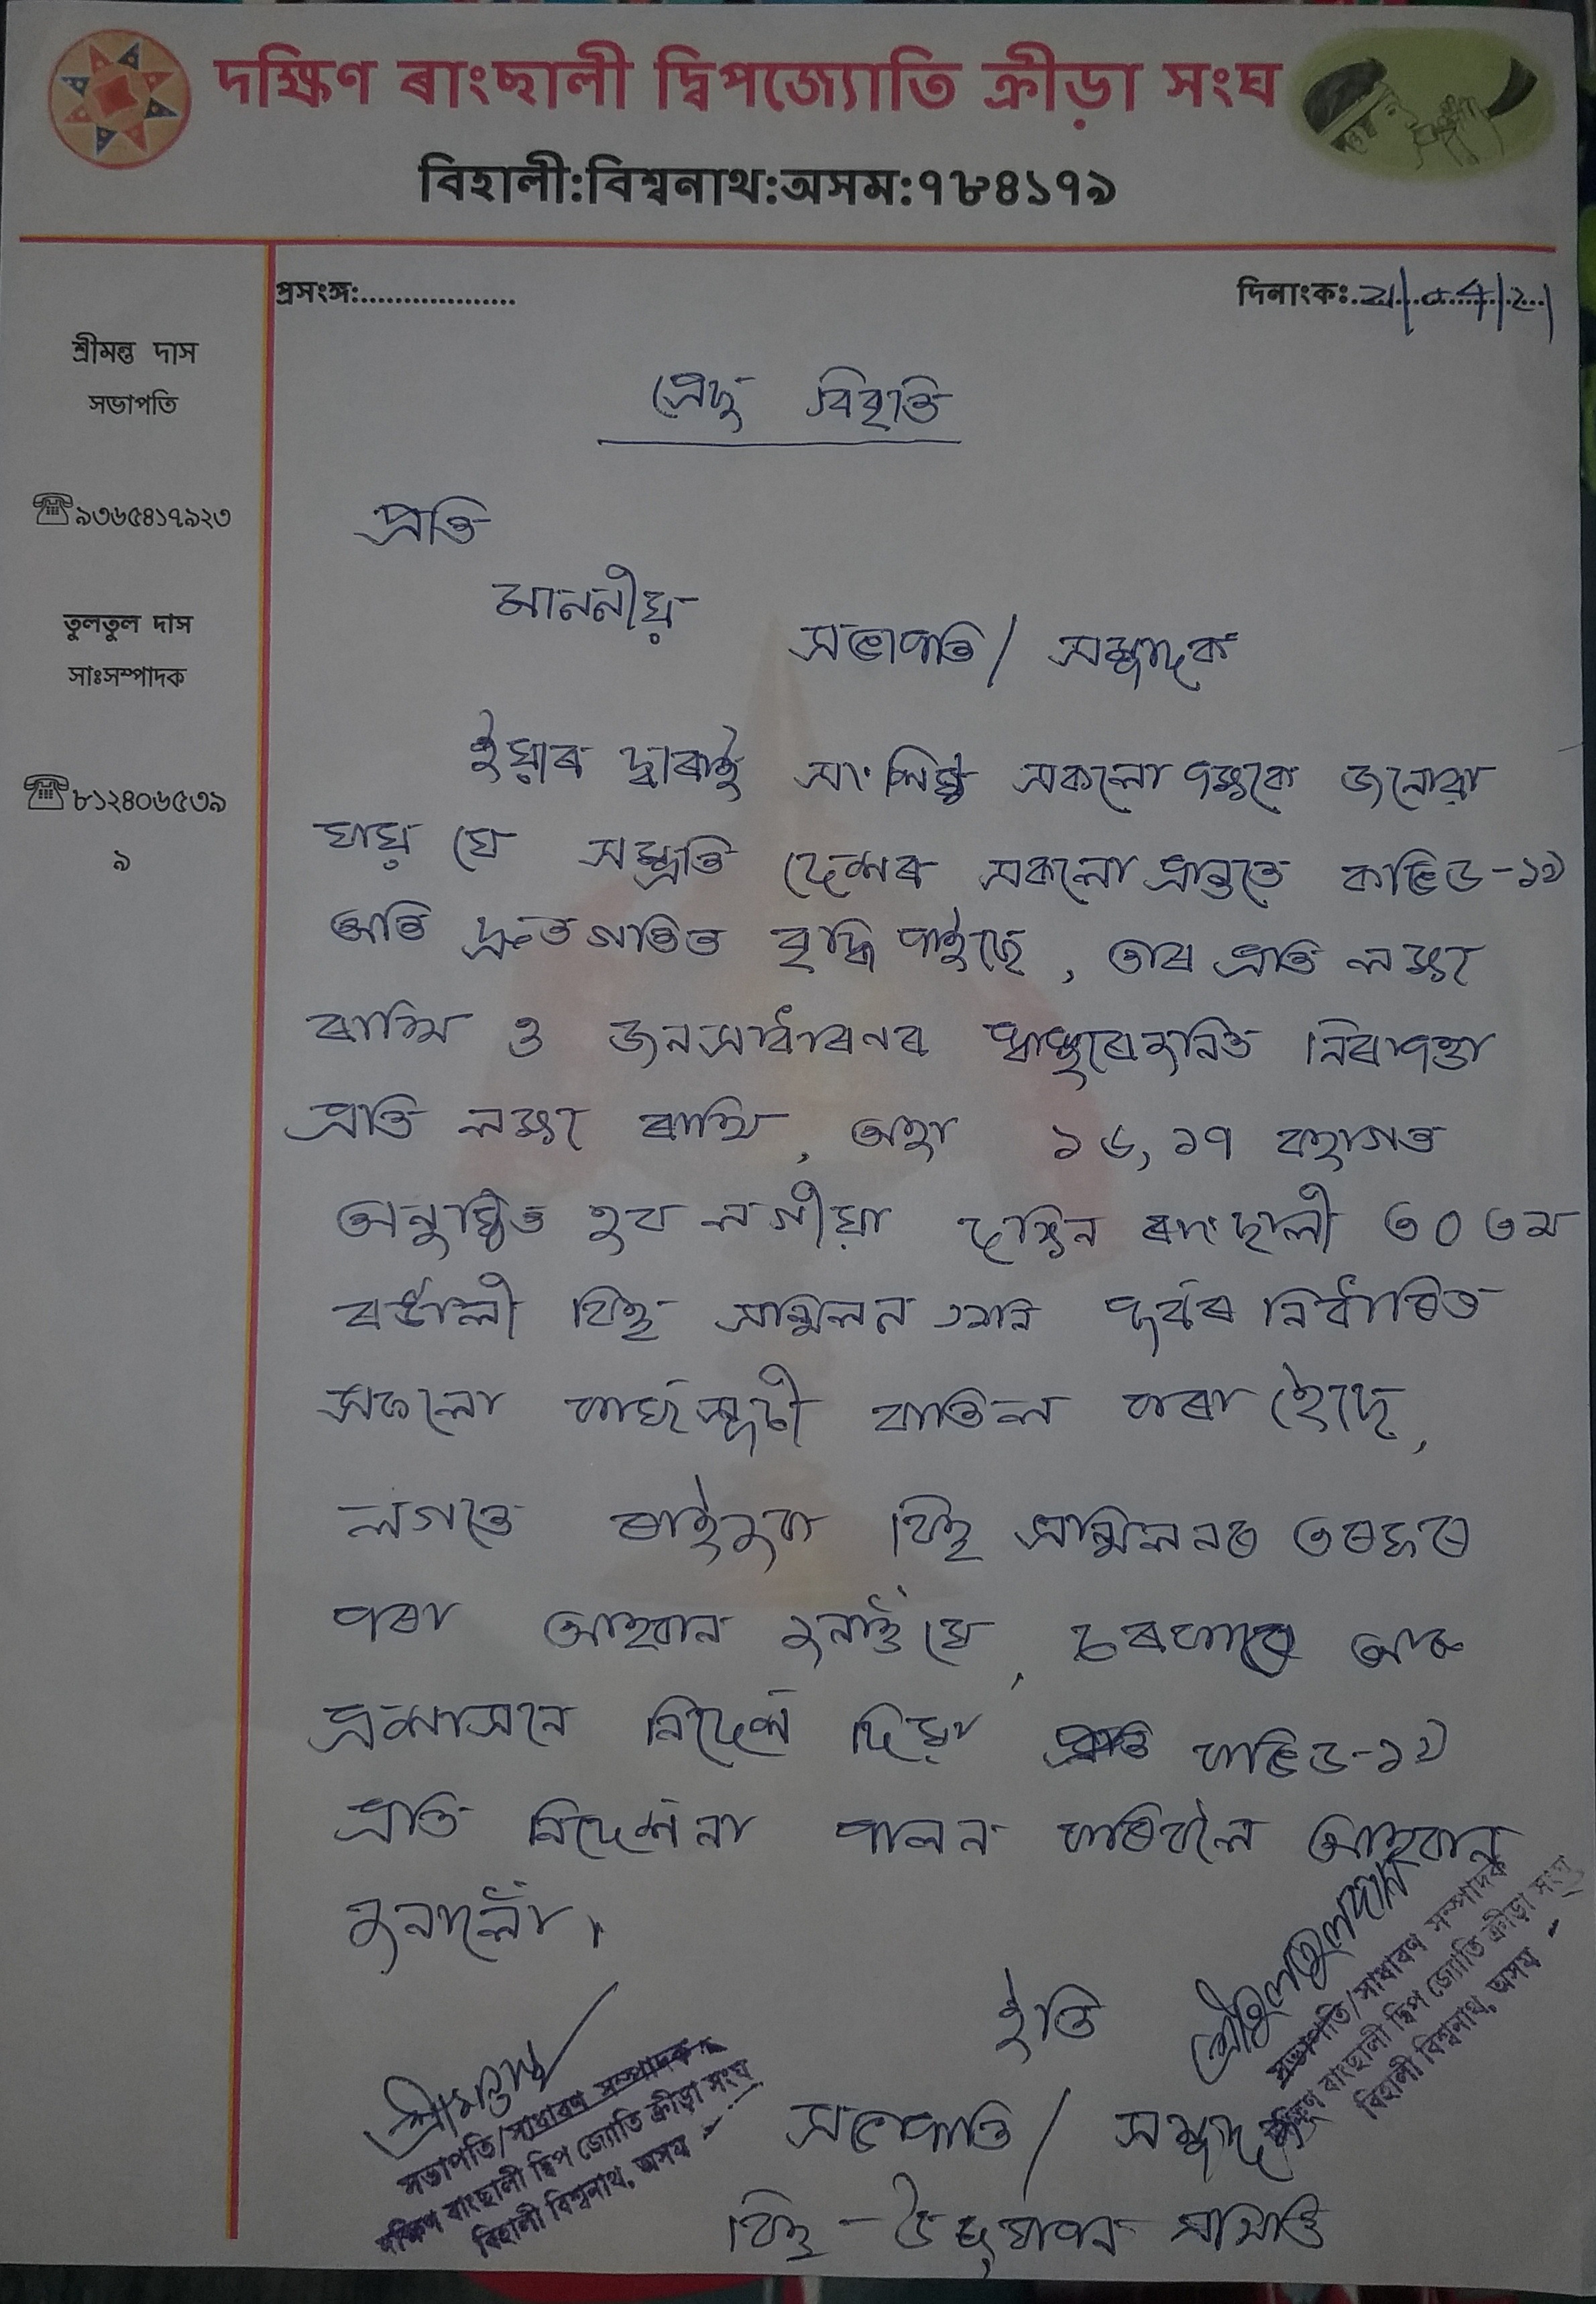 দক্ষিণ ৰাংছালী দ্বিপজ্যোতি ক্ৰীড়া সংঘ
বিহালী:বিশ্বনাথ:অসম:৭৮৪১৭৯
প্ৰসংঙ্গ:..................
দিনাংকঃ.21/04/21
শ্ৰীমন্ত দাস
সভাপতি
☏৯৩৬৫৪১৭৯২৩
তুলতুল দাস
সাঃসম্পাদক
☏৮১২৪০৬৫৩৯
৯
প্ৰেছ বিবৃতি
প্ৰতি
মাননীয়
সভাপতি/ সম্পাদক
ইয়াৰ দ্বাৰাই সাংশ্লিষ্ট সকলো পক্ষকে জনোৱা
যায় যে সম্প্ৰতি দেশৰ সকলো প্ৰান্ততে কভিড-১৯
অতি দ্ৰুতগতিত বৃদ্ধি পাইছে, তাৰ প্ৰতি লক্ষ্য
ৰাখি ও জনসাধাৰনৰ নিৰাপত্তা
প্ৰতি লক্ষ্য ৰাখি, অহা ১৬,১৭ বহাগত
অনুষ্ঠিত হব লগীয়া দক্ষিন ৰাংছালী ৩০তম
ৰঙালী বিহু সন্মিলন পূৰ্বৰ নিৰ্ধাৰিত
সকলো কাৰ্যসূচী বাতিল কৰা হৈছে,
লগতে ৰাইহৰা বিহু সন্মিলনৰ তৰফৰ
পৰা আহবান যে, চৰকাৰে আৰু
প্ৰশাসনে নিৰ্দেশ দিয়া কভিড-১৯
প্ৰতি নিৰ্দেশনা পালন কৰিবলৈ আহবান
জনালোঁ।
ইতি
শ্ৰীতুলতুল দাস
সভাপতি/সাধাৰণ সম্পাদক
দক্ষিণ ৰাংছালী দ্বিপ জ্যোতি ক্ৰীড়া সংঘ
বিহালী বিশ্বনাথ, অসম
শ্ৰীমন্ত দাস
সভাপতি/সাধাৰণ সম্পাদক
দক্ষিণ ৰাংছালী দ্বিপ জ্যোতি ক্ৰীড়া সংঘ
বিহালী বিশ্বনাথ, অসম
সভাপতি/ সম্পাদক
বিহু - উদ্‌যাপন সমিতি